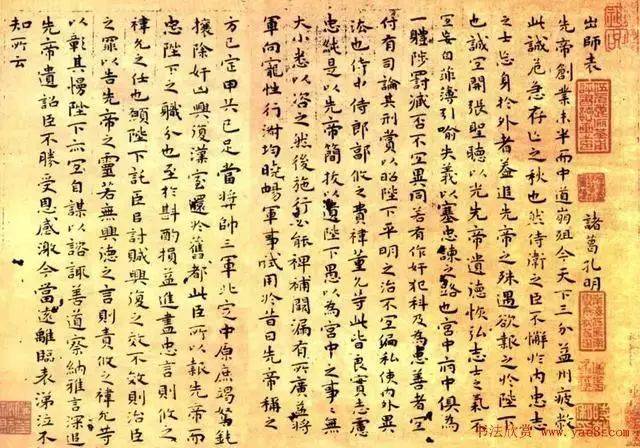 出師表
諸葛孔明
先帝創業未半而中道崩殂今天下三分益州疲弊
此誠危急存亡之秋也然侍衛之臣不懈於內忠士
之士忘身於外者蓋追先帝之殊遇欲報之於陛下
也誠宜開張聖聽以光先帝遺德恢弘志士之氣不
宜妄自菲薄引喻失義以塞忠諫之路也宮中府中俱為
一體陟罰臧否不宜異同若有作奸犯科及為忠善者宜
付有司論其刑賞以昭陛下平明之治不宜偏私使內外異
法也侍中侍郎郭攸之費禕董允等此皆良實志慮
忠純是以先帝簡拔以遺陛下愚以為宮中之事事無
大小悉以咨之然後施行必能裨補闕漏有所廣益將
軍向寵性行淑均曉暢軍事試用於昔日先帝稱之
方已定甲兵已足當獎帥三軍北定中原庶竭駑鈍
攘除奸凶興復漢室還於舊都此臣所以報先帝而
忠陛下之職分也至於斟酌損益進盡忠言則攸之
禕允之任也願陛下託臣以討賊興復之效不效則治臣
之罪以告先帝之靈若無興德之言則責攸之禕允等
以彰其慢陛下亦宜自謀以諮諏善道察納雅言深追
先帝遺詔臣不勝受恩感激今當遠離臨表涕泣不
知所云
书法欣赏
www.yac8r.com